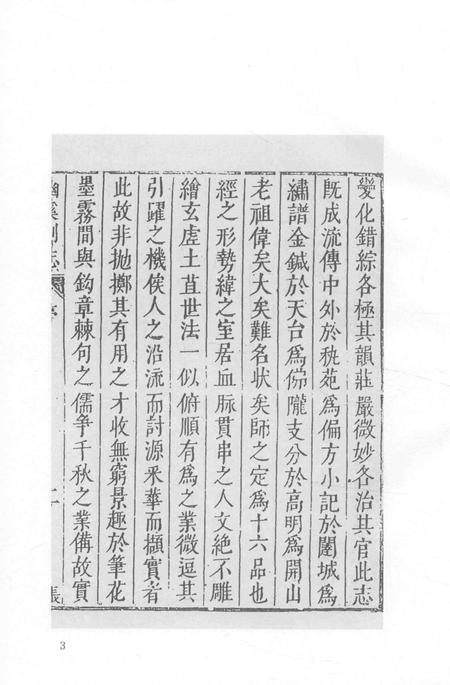 變化錯綜各極其韻莊嚴微妙各治其官此志
既成流傳中外於稗苑為偏方小記於闉城為
繡譜金鍼於天台為佛隴支分於高明為開山
老祖偉矣大矣難名狀矣師之定為十六品也
經之形勢緯之室居血脈貫串之人文絕不雕
繪玄虛土苴世法一似俯順有為之業微逗其
引躍之機俟人之沿流而討源釆華而擷實者
此故非拋擲其有用之才收無窮景趣於筆花
墨霧間與鈎章棘句之儒爭千秋之業備故實
幽溪別志
序
二
長
3